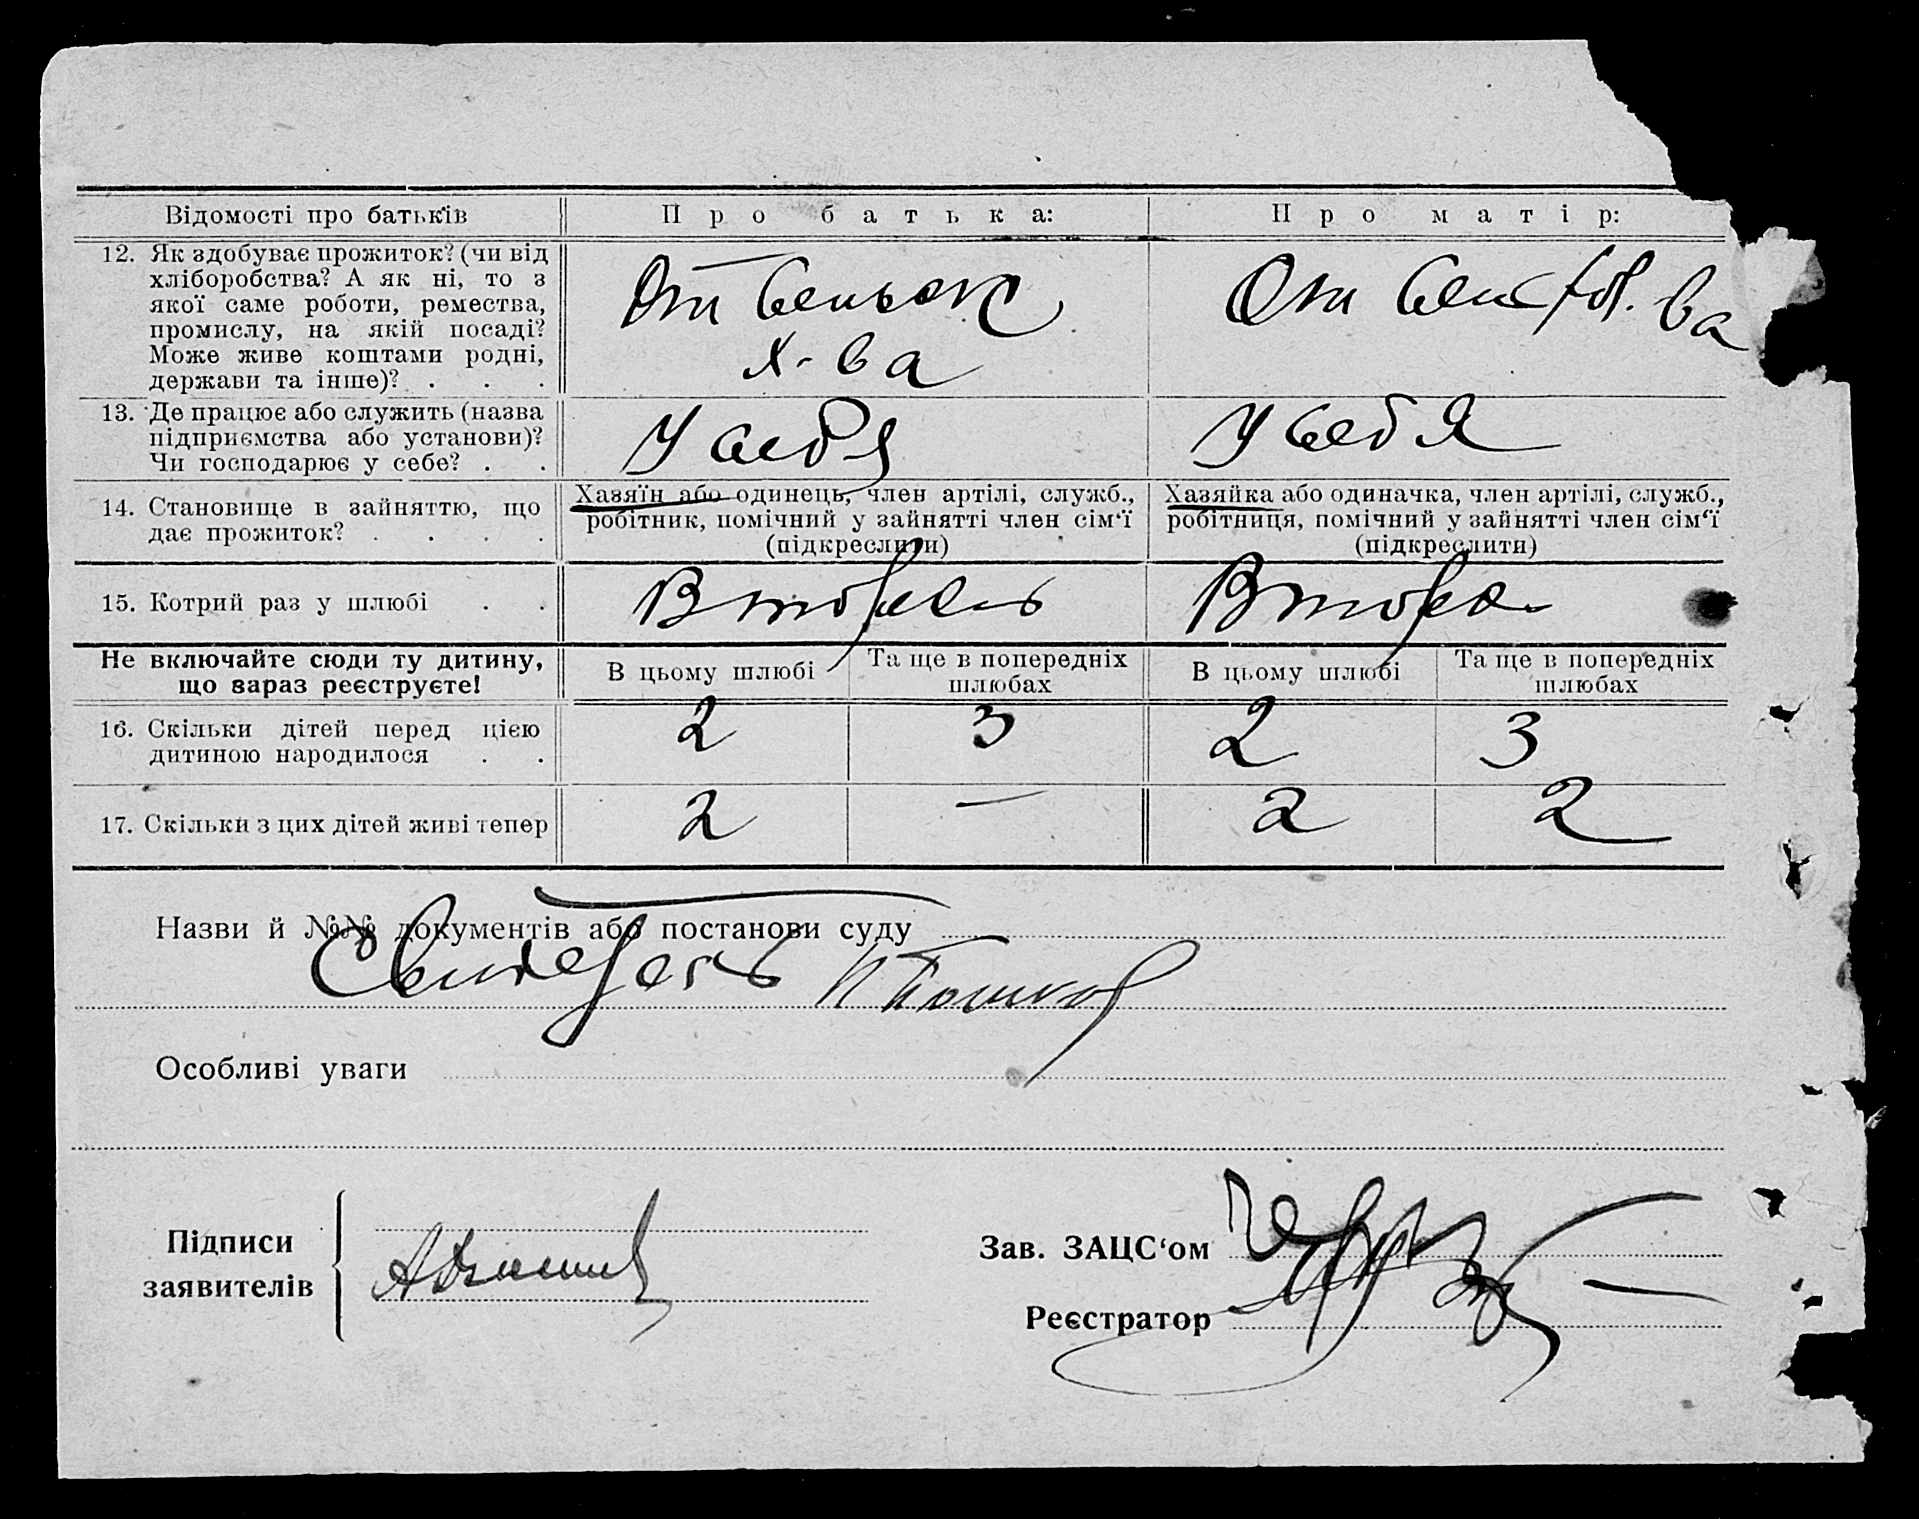 Відомості про батьків
Про батька:
Про матір:
12. Як здобуває прожиток? (чи від
хліборобства? А як ні, то з
якої саме роботи, ремества,
промислу, на якій посаді?
Може живе коштами родні,
держави та інше)? . . .
От сельск
х-ва
От сельск. ва
13. Де працює або служить (назва
підприємства або установи)?
Чи господарює у себе? . .
У себя
У себя
14. Становище в зайняттю, що
дає прожиток? . . . .
Хазяїн або одинець, член артілі, служб.,
робітник, помічний у зайнятті член сім‘ї
(підкреслити)
Хазяйка або одиначка, член артілі, служб.,
робітниця, помічний у зайнятті член сім‘ї
(підкреслити)
15. Котрий раз у шлюбі . .
Второй
Второй
Не включайте сюди ту дитину,
що зараз реєструєте!
В цьому шлюбі
Та ще в попередніх
шлюбах
В цьому шлюбі
Та ще в попередніх
шлюбах
16. Скільки дітей перед цією
дитиною народилося . .
2
3
2
3
17. Скільки з цих дітей живі тепер
2
—
2
2
Назви й №№ документів або постанови суду
Свидетель
Особливі уваги
Підписи
заявителів
Зав. ЗАЦС‘ом
Реєстратор